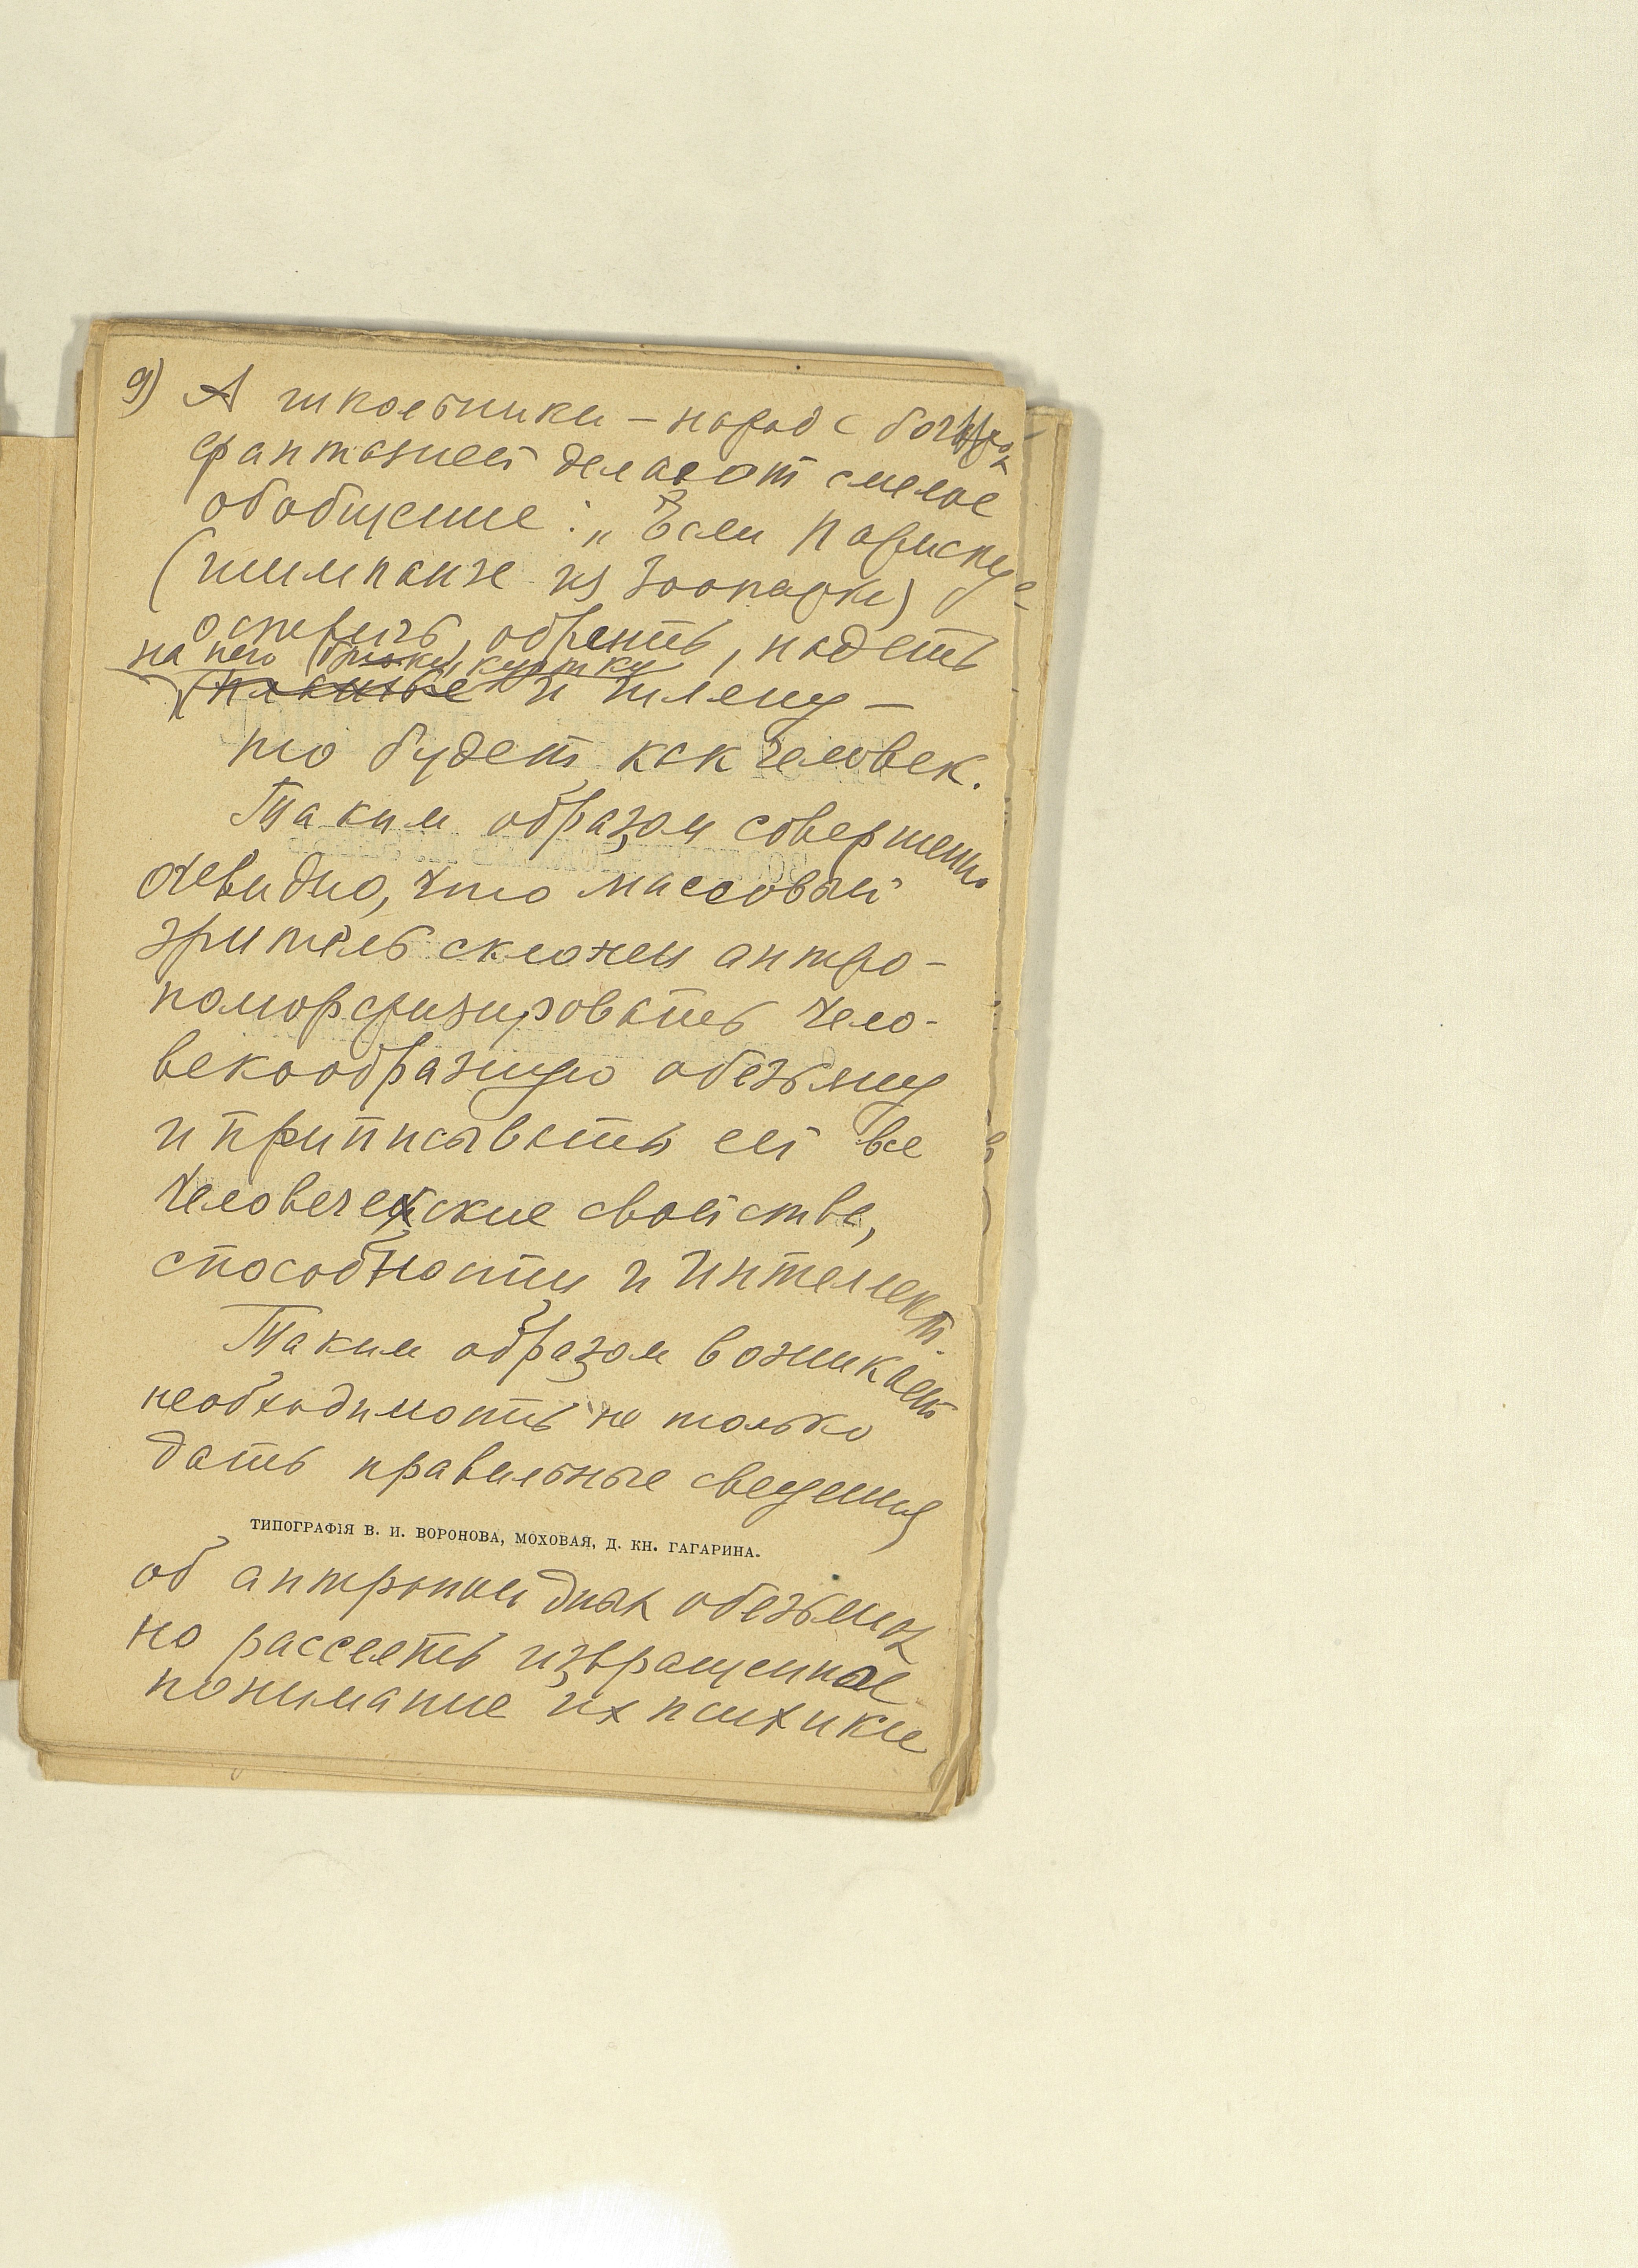 9) А школьники – народ с богатой
фантазией делают смелое
обобщение: „Если Париску
(шимпанзе из Зоопарка)
остричь, обрить, надеть
на него брюки, куртку
и шляпу –
то будет как человек.
Таким образом совершенно
очевидно, что массовый
зритель склонен антро-
поморфизировать чело-
векообразную обезьяну
и приписывать ей все
человеческие свойства,
способности и интеллект.
Таким образом возникает
необходимость не только
дать правильные сведения
ТИПОГРАФІЯ В. И. ВОРОНОВА, МОХОВАЯ, Д. КН. ГАГАРИНА.
об антропоидных обезьянах
но рассеять извращенное
понимание их психики